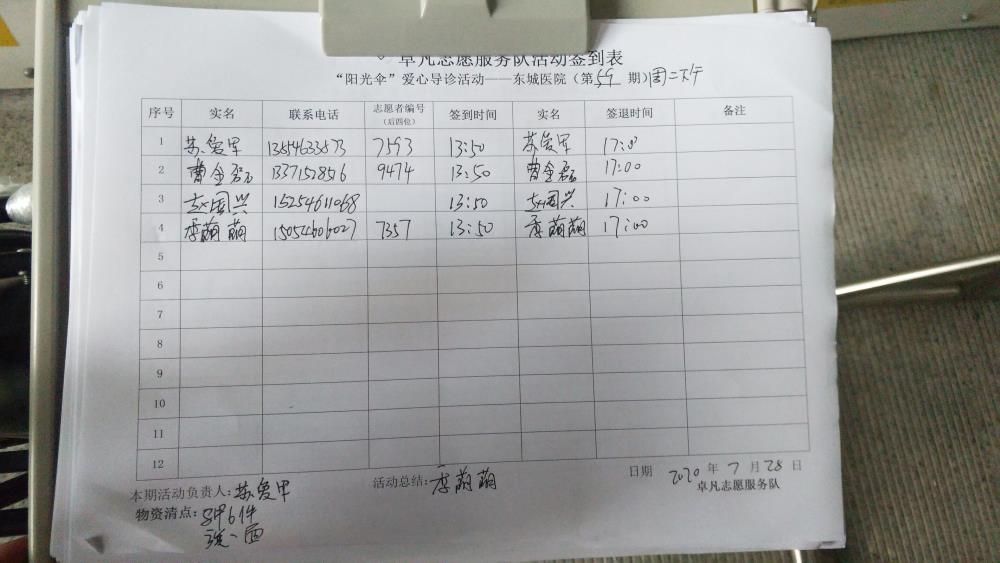 卓凡志愿服务队活动签到表
“阳光伞”爱心导诊活动——东城医院（第59期）周二下午
序号 实名 联系电话 志愿者编号（后四位） 签到时间 实名 签退时间 备注
1 苏爱军 13:50 苏爱军 7593
2 曹金磊 9474 13:50 曹金磊 17:00
3 赵国兴 15254611068 13:50 赵国兴 17:00
4 李萌萌 7357 13:50 李萌萌 17:00
5
6
7
8
9
10
11
12
本期活动负责人：苏爱军 活动总结：李萌萌 日期 2020年7月28日
物资清点： 卓凡志愿服务队